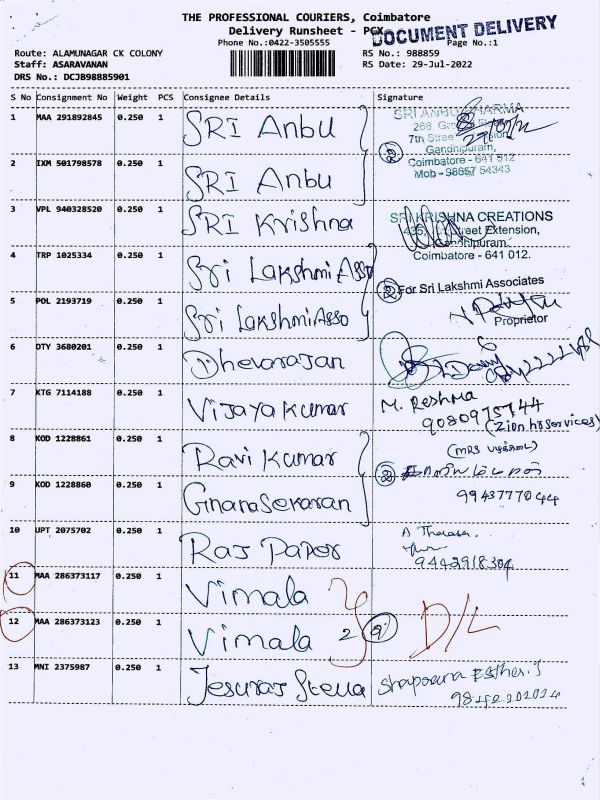 THE PROFESSIONAL COURIERS, Coimbatore
Delivery Runsheet - PCX
DOCUMENT DELIVERY
Phone No.:0422-3505555
Page No.:1
Route: ALAMUNAGAR CK COLONY
RS No.: 988859
Staff: ASARAVANAN
RS Date: 29-Jul-2022
DRS No.: DCJB98885901
S No Consignment No Weight PCS Consignee Details Signature
1 MAA 291892845 0.250 1 SRI Anbu
SRI ANBU DHARMA
268,
7th Street
Gandhipuram,
Coimbatore - 641 012
Mob - 98657 54343
2 IXM 501798578 0.250 1 SRI Anbu
2
3 VPL 940328520 0.250 1 SRI Krishna
SRI KRISHNA CREATIONS
Street Extension,
Gandhipuram.
Coimbatore - 641 012.
4 TRP 1025334 0.250 1 Sri Lakshmi Asso
2 For Sri Lakshmi Associates
5 POL 2193719 0.250 1 Sri Lakshmi Asso
Proprietor
6 DTY 3680201 0.250 1 Dhevarajan
7 KTG 7114188 0.250 1 Vijaya Kumar
M. Reshma
9080975744
(Zion hr services)
8 KOD 1228861 0.250 1 Ravi Kumar
2
9 KOD 1228860 0.250 1 GnanaSekaran
9943777044
10 UPT 2075702 0.250 1 Raj Paper
A Tharasa.
9442918304
11 MAA 286373117 0.250 1 Vimala
12 MAA 286373123 0.250 1 Vimala 2
D/L
13 MNI 2375987 0.250 1 Jesuraj Stella